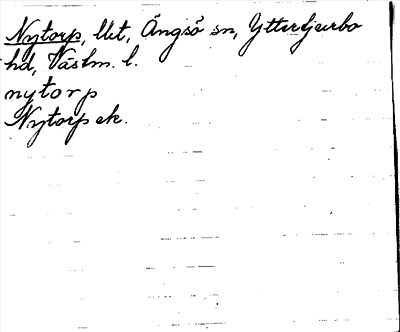 Nytorp, lht, Ängsö sn, Yttertjurbo
hd, Västm. l.
nytorp
Nytorp ek.